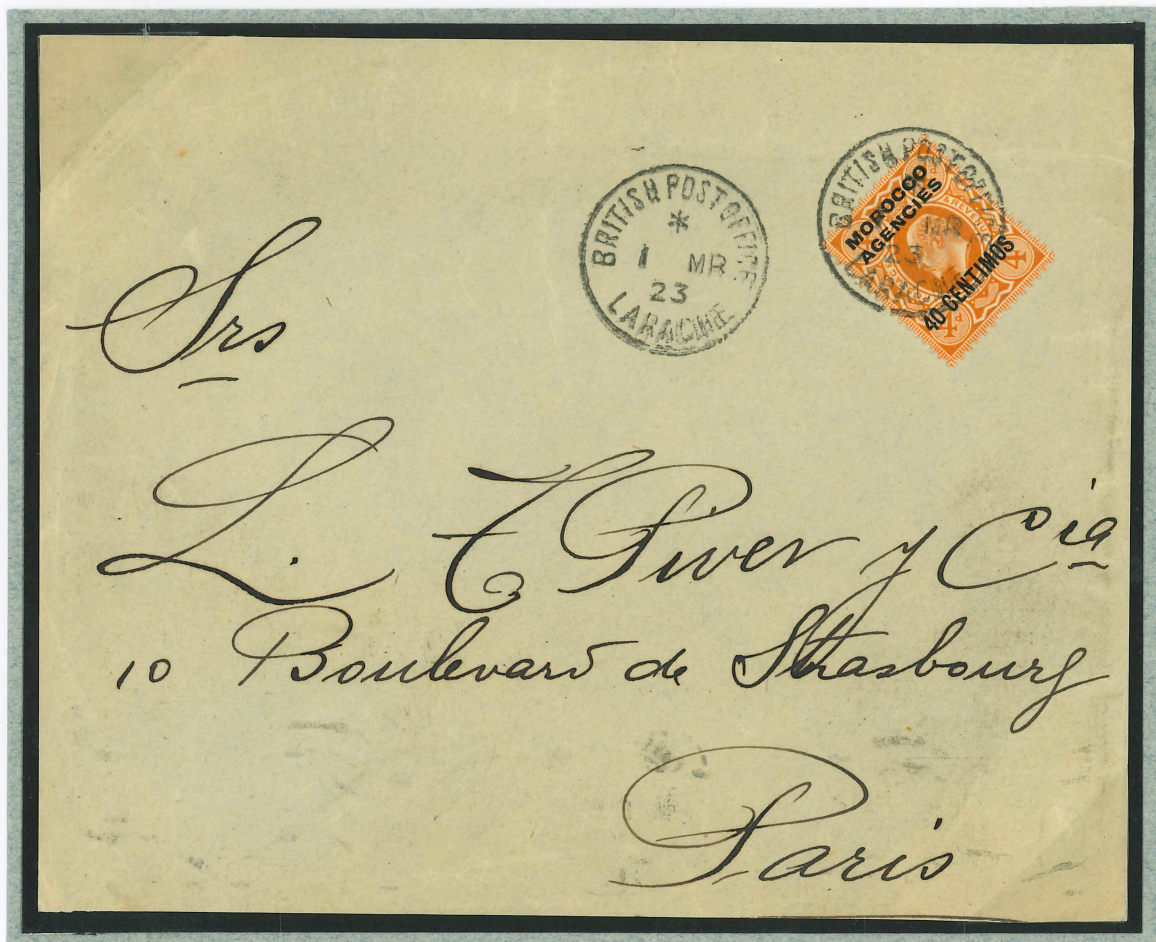 BRITISH POST OFFICE
1 MR
23
LARACHE
BRITISH POST OFFICE
MR
23
LARACHE
MOROCCO
AGENCIES
& REVENUE
40 CENTIMOS
4d
4d
Srs
L. T Piver y Cia
10 Boulevard de Strasbourg
Paris